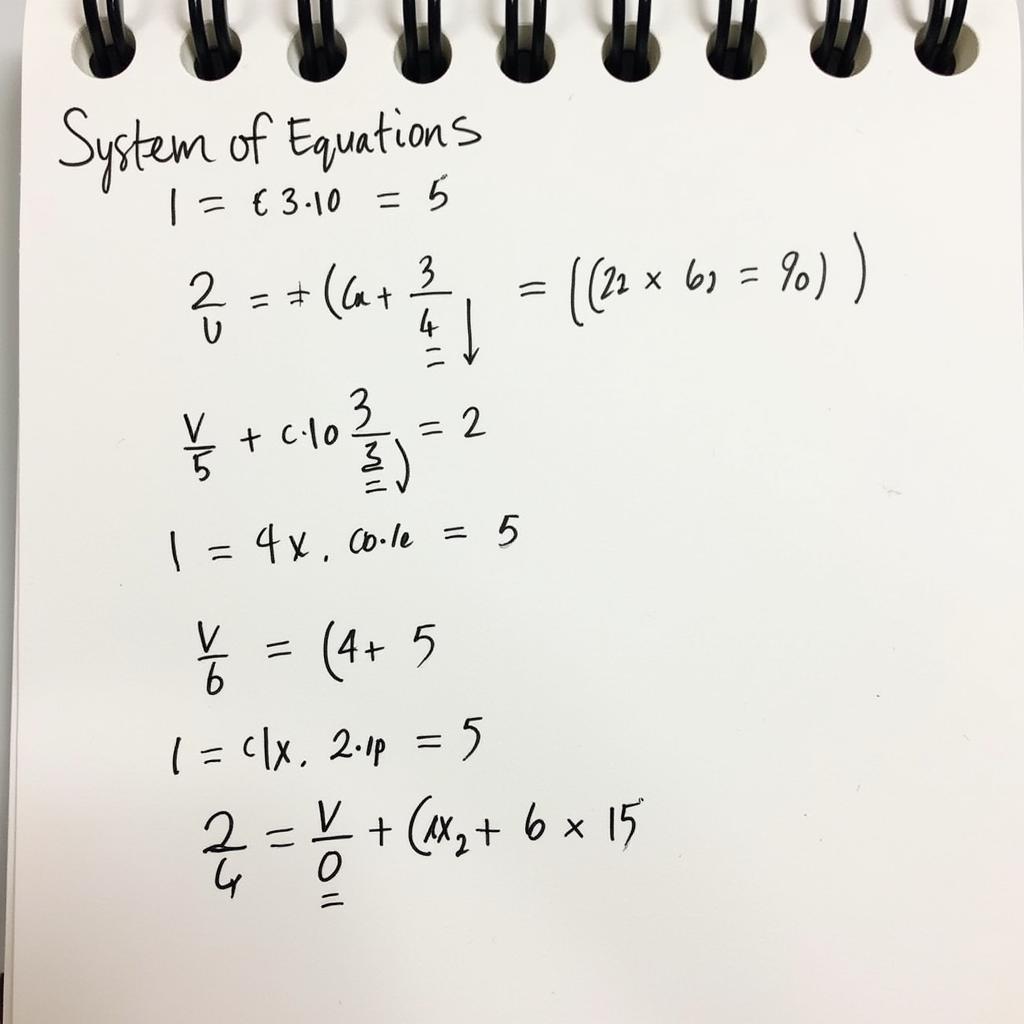 System of Equations
1 = € 3·10 = 5
2/U = ≠ (Ca + 3/4 ↓ = ((22 x 6) = 90))
V/5 + C·10 3/3) = 2
1 = 4x. co·le = 5
V/6 = (4+ 5
1 = c|x. 2·1p = 5
2/4 = V/0 + (1x₂ + 6 x 15